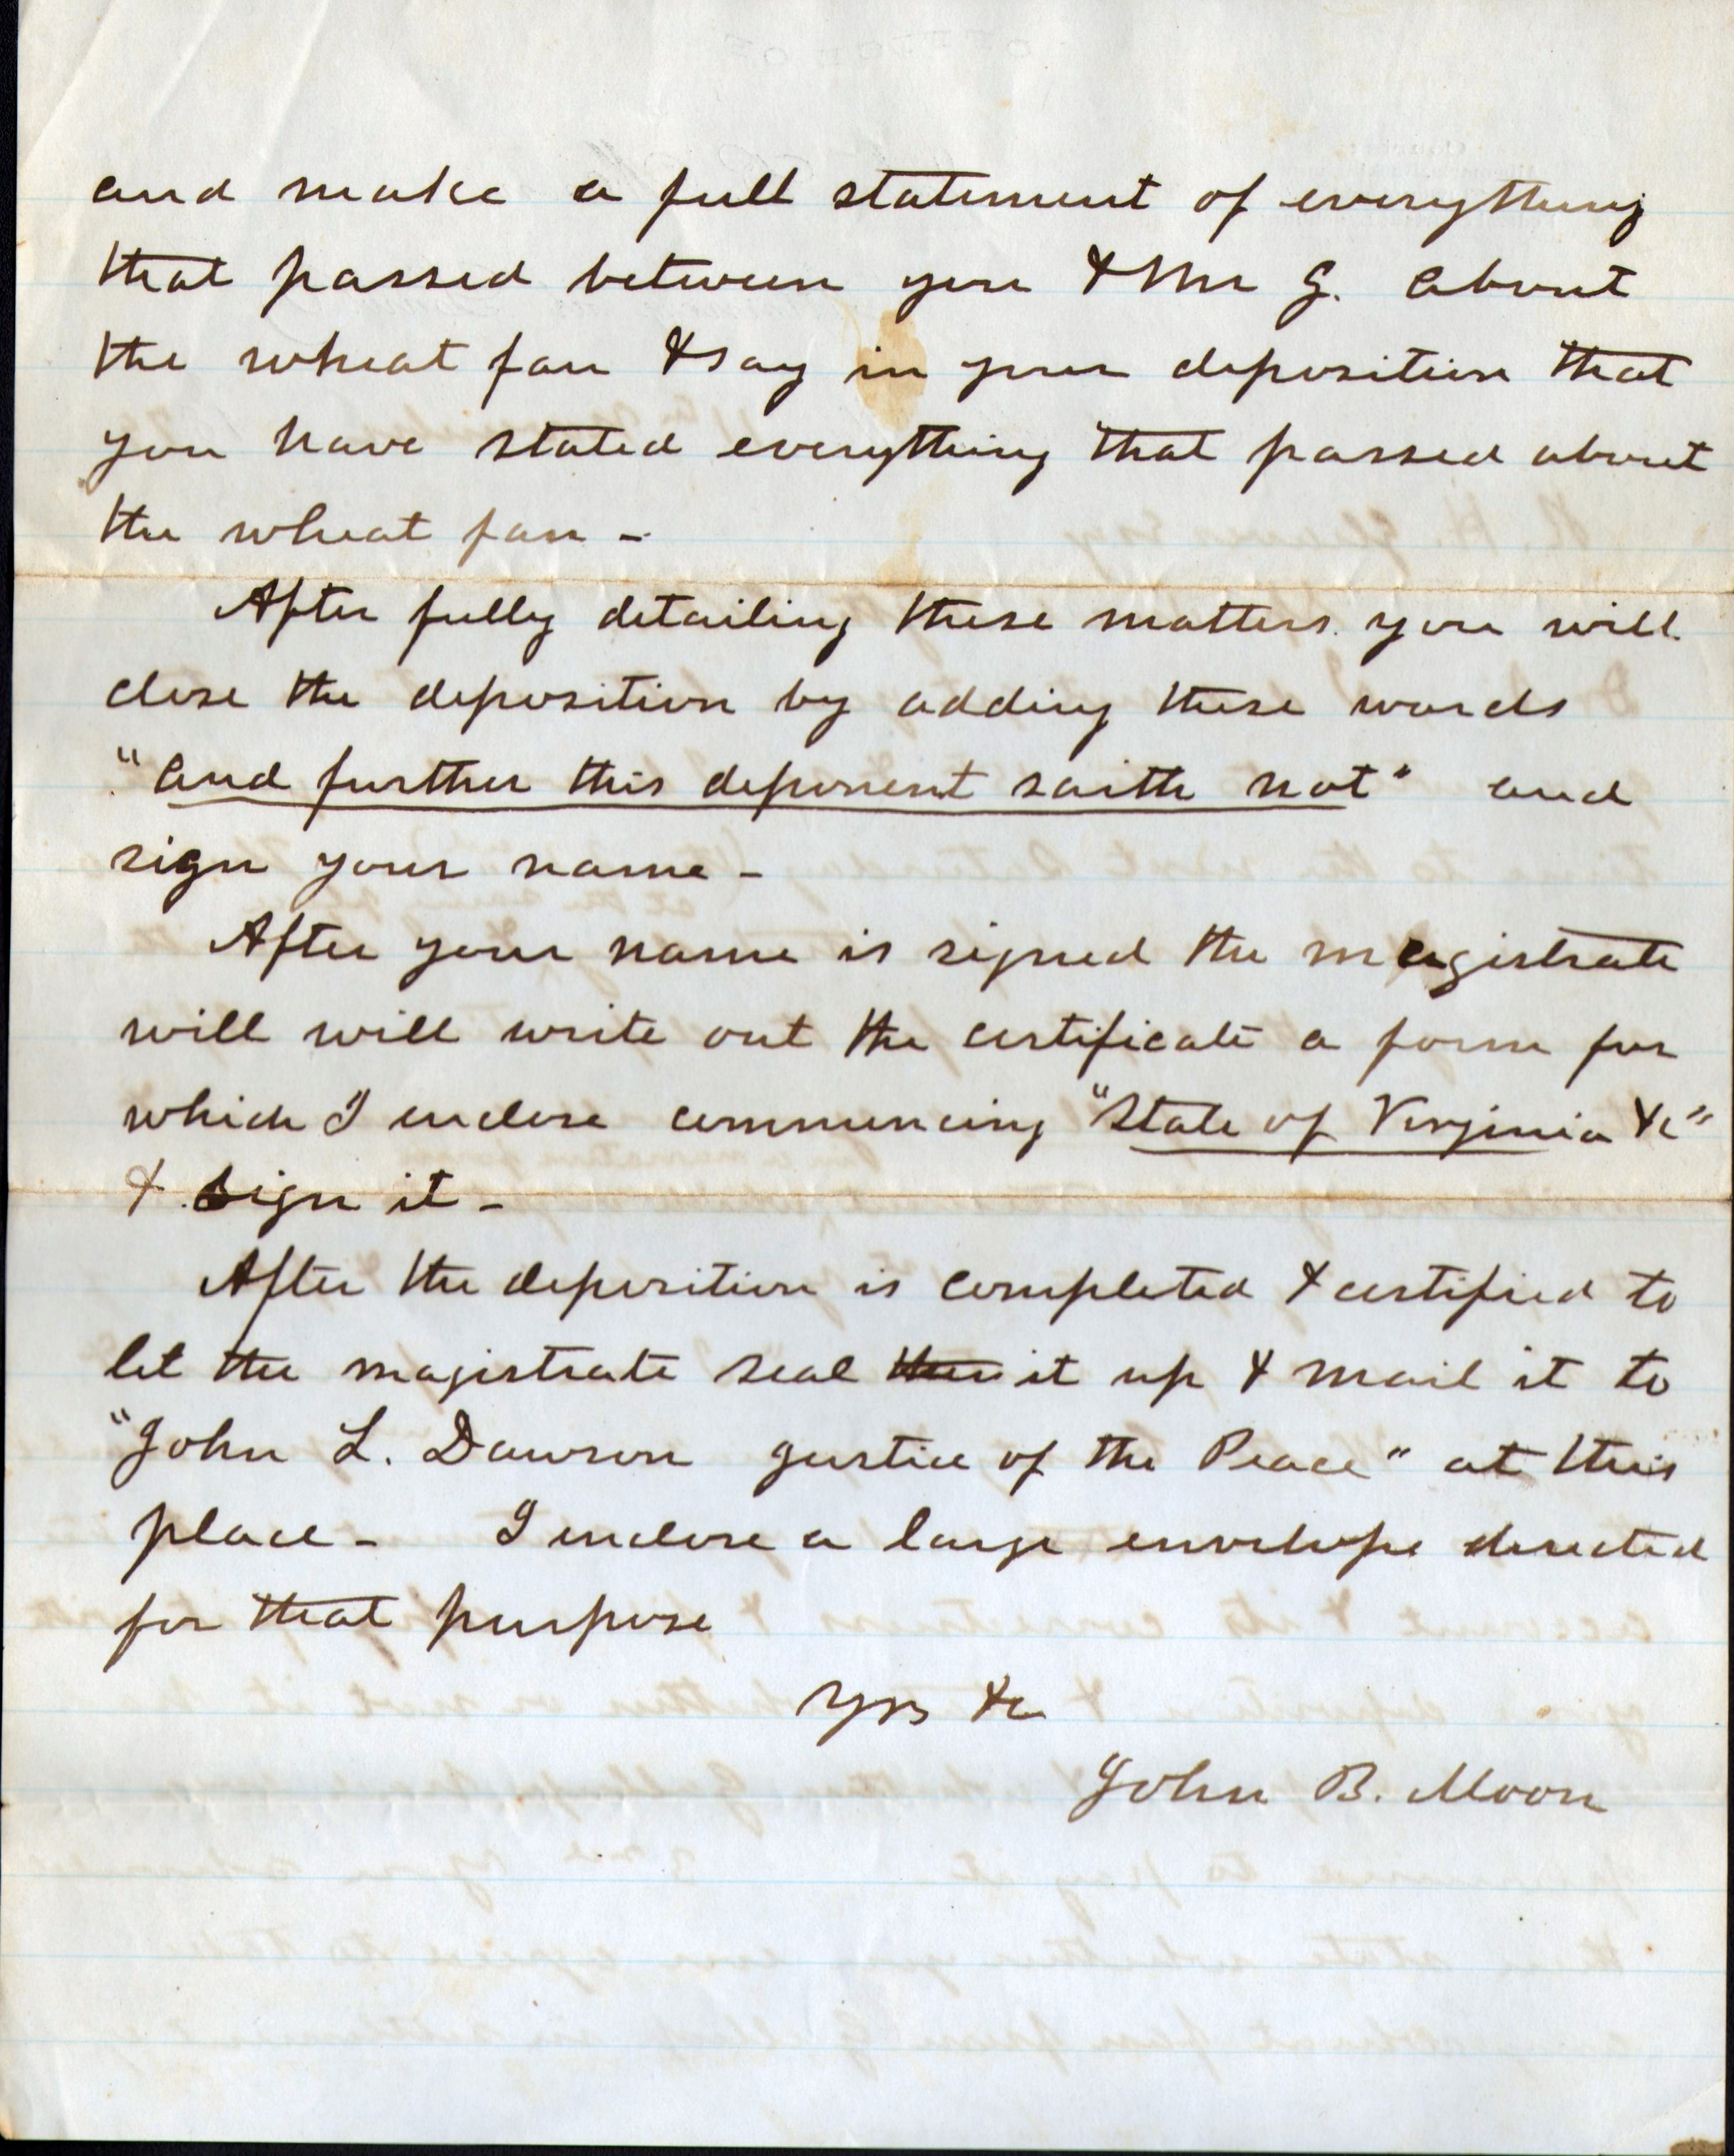 and make a full statement of everything
that passed between you & Mr G. about
the wheat fan & say in your deposition that
you have stated everything that passed about
the wheat fan -
After fully detailing these matters you will
close the deposition by adding these words
"and further this deponent saith not" and
sign your name -
After your name is signed the magistrate
will will write out the certificate a form for
which I enclose commencing "State of Virginia &c"
& sign it -
After the deposition is completed & certified to
let the magistrate seal it up & mail it to
"John L. Dawson Justice of the Peace" at this
place - I enclose a large envelope directed
for that purpose
Yrs &c
John B. Moon